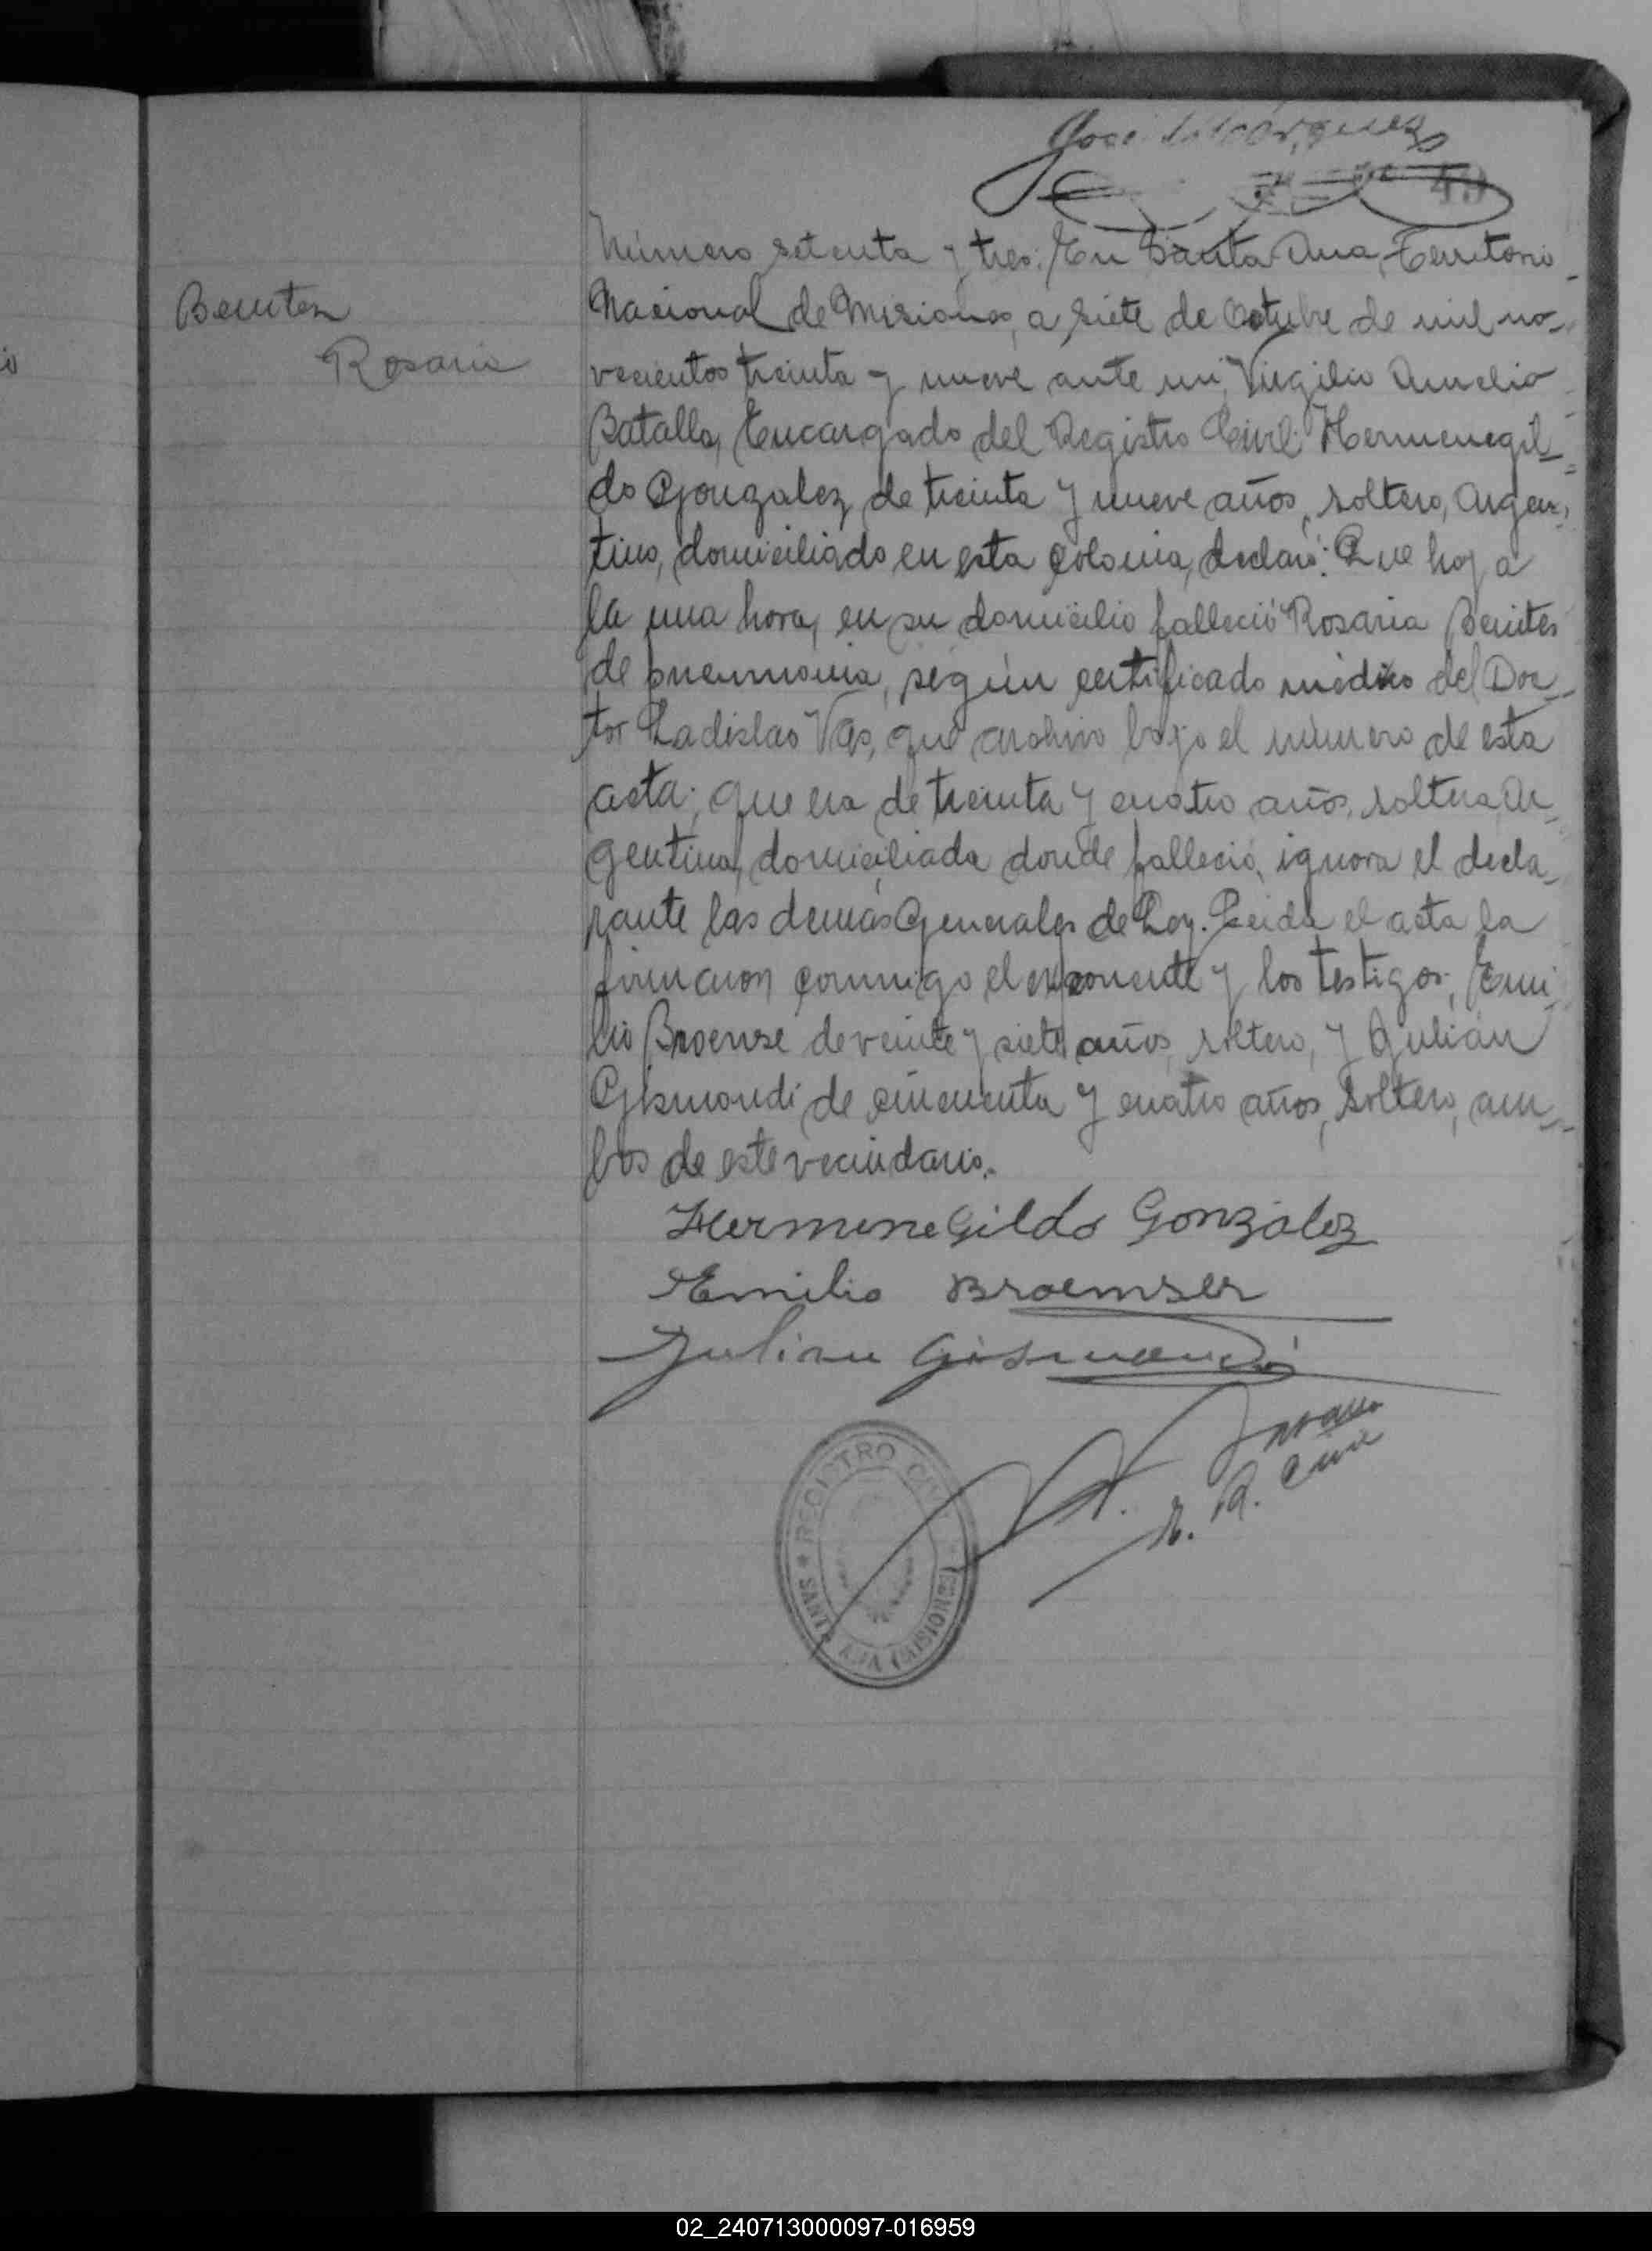 José
49
Benitez
Rosaria
Número setenta y tres: En Santa Ana, Territorio
Nacional de Misiones, a siete de Octubre de mil no-
vecientos treinta y nueve ante mi, Virgilio Amelio
Batalla, Encargado del Registro Civil: Hermenegil-
do Gonzalez, de treinta y nueve años, soltero, Argen-
tino, domiciliado en esta Colonia, declaró: Que hoy a
la una hora, en su domicilio falleció Rosaria Benites
de pneumonia, según certificado médico del Doc-
tor Ladislao Vas, que archivo bajo el número de esta
acta; que era de treinta y cuatro años, soltera, Ar-
gentina, domiciliada donde falleció, ignora el decla-
rante las demás Generales de Ley. Leida el acta la
firmaron conmigo el exponente y los testigos; Emi-
lio Broense de veinte y siete años, soltero, y Julián
Gismondi de cincuenta y cuatro años, soltero, am-
bos de este vecindario.
Hermenegildo Gonzalez
Emilio Broemser
Julian Gismondi
REGISTRO CIVIL
SANTA ANA (MISIONES)
02_240713000097-016959